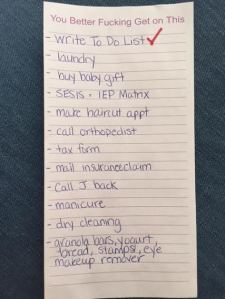 You Better Fucking Get on This
- Write To Do List ✓
- laundry
- buy baby gift
- SESIS + IEP Matrix
- make haircut appt
- call orthopedist
- tax form
- mail insurance claim
- Call J back
- manicure
- dry cleaning
- granola bars, yogurt,
bread, stamps, eye
makeup remover